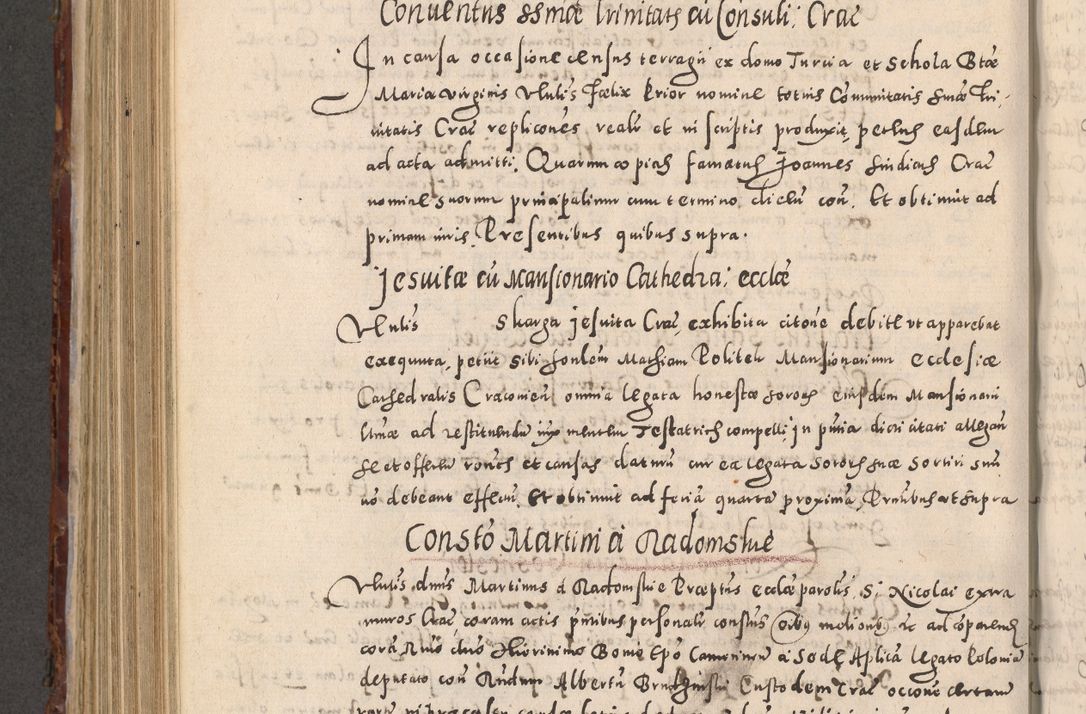 Conuentus ssmæ Trinitatis cū Consuli: Crac
In causa occasione census terragii ex domo Turcia et Schola Btæ
Mariæ virginis Vblis Fælix Prior nomine totius Cōmunitatis smæ Tri-
nitatis Crac replicōnes reales et in scriptis produxit, petens easdem
ad acta admitti. Quarum copias famatus Joannes Sindicus Crac
nomine suorum principalium cum termino, dicens con. Et obtinuit ad
primam iuris. Presentibus quibus supra.
Jesuitæ cū Mansionario Cathedra: ecclæ
Vblis Skarga Jesuita Crac, exhibita citōne debite vt apparebat
exequuta, petiit sibi Mathiam Politen Mansionarium ecclesiæ
Cathedralis Cracouien omnia legata honestæ sororis eiusdem Mansionarii
ad restituendū iuxta mentem Testatricis compelli in pntia dicti citati allegan
se et offerens et causas daturū cur ea legata sororis suæ sortiri suū
nō debeant effectū. Et obtinuit ad feriā quartā proximā, Pntibus vt supra
Constō Martini à Radomskie
Vblis dnus Martinus à Radomskie Præptus ecclæ parolis S. Nicolai extra
muros Crac coram actis pntibus personalr constus oibus melioribus etc ad cōparend
corā Rndo dno Hieronimo Bonio Epō Camerinen a Sede Aplica legato Polonia
deputato con Rndum Albertū Custodem Crac occōne certarū